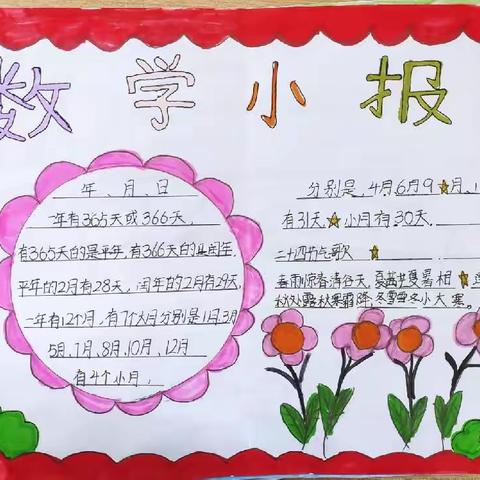 数学小报
年、月、日
一年有365天或366天,
有365天的是平年,有366天的是闰年,
平年的2月有28天,闰年的2月有29天,
一年有12个月,有7个大月分别是1月,3月
5月、7月、8月、10月、12月
有4个小月,
分别是,4月,6月9月,1
有31天 小月有30天.
二十四节气歌
春雨惊春清谷天,夏满芒夏暑相
秋处露秋寒霜降,冬雪雪冬小大寒。